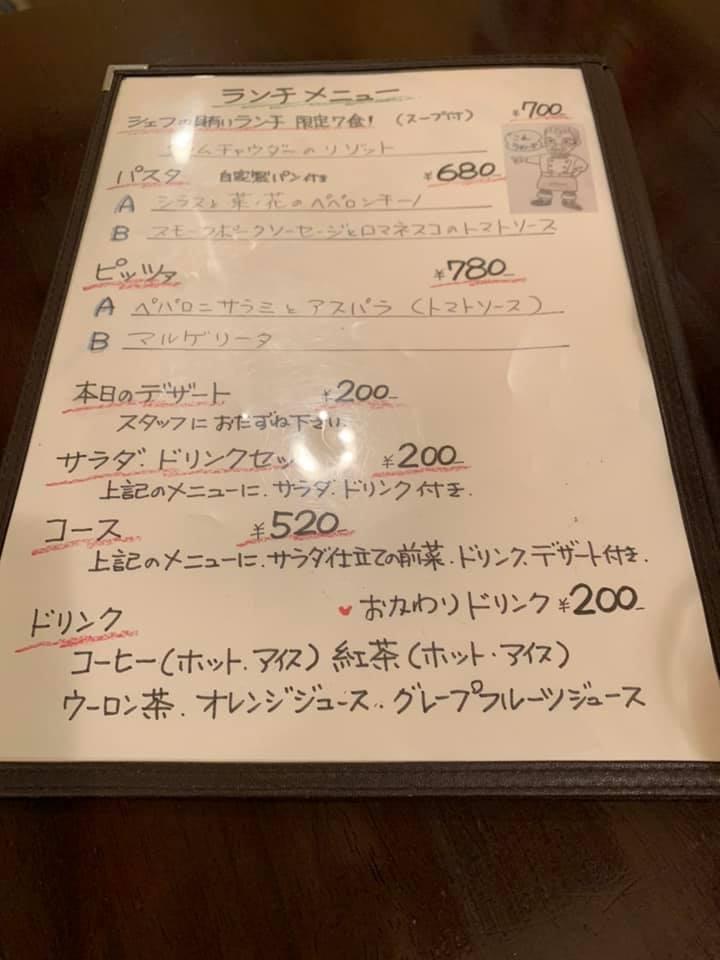 ランチメニュー
シェフの賄いランチ 限定7食! (スープ付) ¥700
クラムチャウダーのリゾット
パスタ 自家製パン付き ¥680
A シラスと菜ノ花のペペロンチーノ
B スモークポークソーセージとロマネスコのトマトソース
ピッツァ ¥780
A ペパロニサラミとアスパラ (トマトソース)
B マルゲリータ
本日のデザート ¥200
スタッフにおたずね下さい
サラダ・ドリンクセット ¥200
上記のメニューに、サラダ・ドリンク付き.
コース ¥520
上記のメニューに、サラダ仕立ての前菜・ドリンク、デザート付き.
ドリンク おかわりドリンク ¥200
コーヒー(ホット・アイス) 紅茶(ホット・アイス)
ウーロン茶・オレンジジュース・グレープフルーツジュース